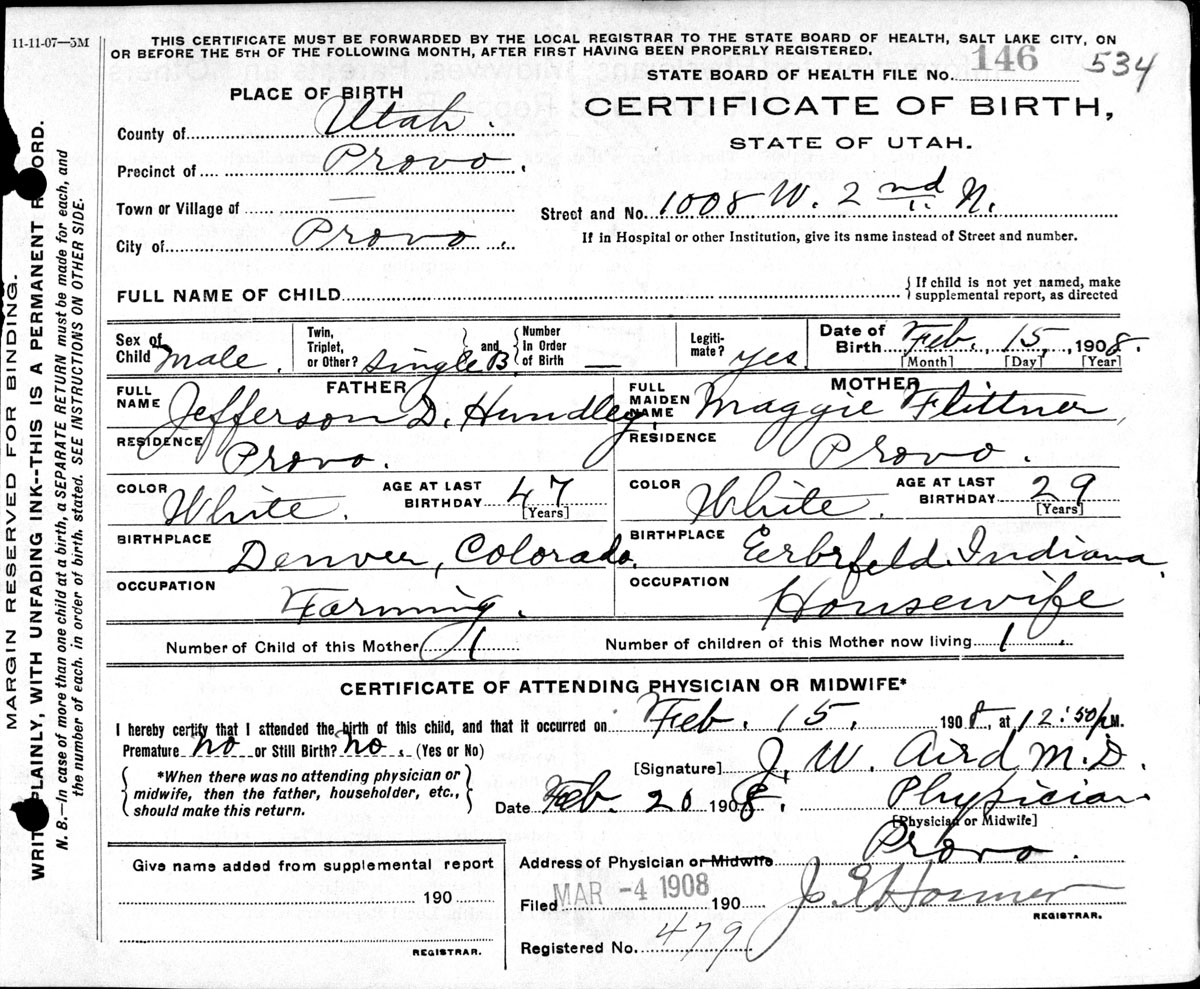 11-11-07—5M
THIS CERTIFICATE MUST BE FORWARDED BY THE LOCAL REGISTRAR TO THE STATE BOARD OF HEALTH, SALT LAKE CITY, ON
OR BEFORE THE 5TH OF THE FOLLOWING MONTH, AFTER FIRST HAVING BEEN PROPERLY REGISTERED.
STATE BOARD OF HEALTH FILE No. 146 534
CERTIFICATE OF BIRTH,
STATE OF UTAH.
PLACE OF BIRTH
County of Utah.
Precinct of Provo.
Town or Village of —
City of Provo.
Street and No. 1008 W. 2nd N.
If in Hospital or other Institution, give its name instead of Street and number.
FULL NAME OF CHILD
{ If child is not yet named, make
supplemental report, as directed
Sex of Child Male.
Twin, Triplet, or Other? Single B. } and { Number In Order of Birth —
Legiti-mate? yes.
Date of Birth Feb., 15, 1908.
[Month] [Day] [Year]
FATHER
FULL NAME Jefferson D. Hundley
RESIDENCE Provo.
COLOR White. AGE AT LAST BIRTHDAY 47 [Years]
BIRTHPLACE Denver, Colorado.
OCCUPATION Farming.
MOTHER
FULL MAIDEN NAME Maggie Flittner,
RESIDENCE Provo.
COLOR White. AGE AT LAST BIRTHDAY 29 [Years]
BIRTHPLACE Eerbrfeld Indiana,
OCCUPATION Housewife
Number of Child of this Mother 1 Number of children of this Mother now living 1.
CERTIFICATE OF ATTENDING PHYSICIAN OR MIDWIFE*
I hereby certify that I attended the birth of this child, and that it occurred on Feb. 15. 1908, at 12:50 P.M.
Premature no or Still Birth? no. (Yes or No)
{ *When there was no attending physician or
midwife, then the father, householder, etc.,
should make this return. }
[Signature] J. W. Aird M.D.
Date Feb. 20 1908. Physician
[Physician or Midwife]
Address of Physician or Midwife Provo.
Give name added from supplemental report
190
REGISTRAR.
Filed MAR -4 1908 190
J. E. Hosmer
REGISTRAR.
Registered No. 479
MARGIN RESERVED FOR BINDING.
WRITE PLAINLY, WITH UNFADING INK--THIS IS A PERMANENT RECORD.
N. B.—In case of more than one child at a birth, a SEPARATE RETURN must be made for each, and
the number of each, in order of birth, stated. SEE INSTRUCTIONS ON OTHER SIDE.